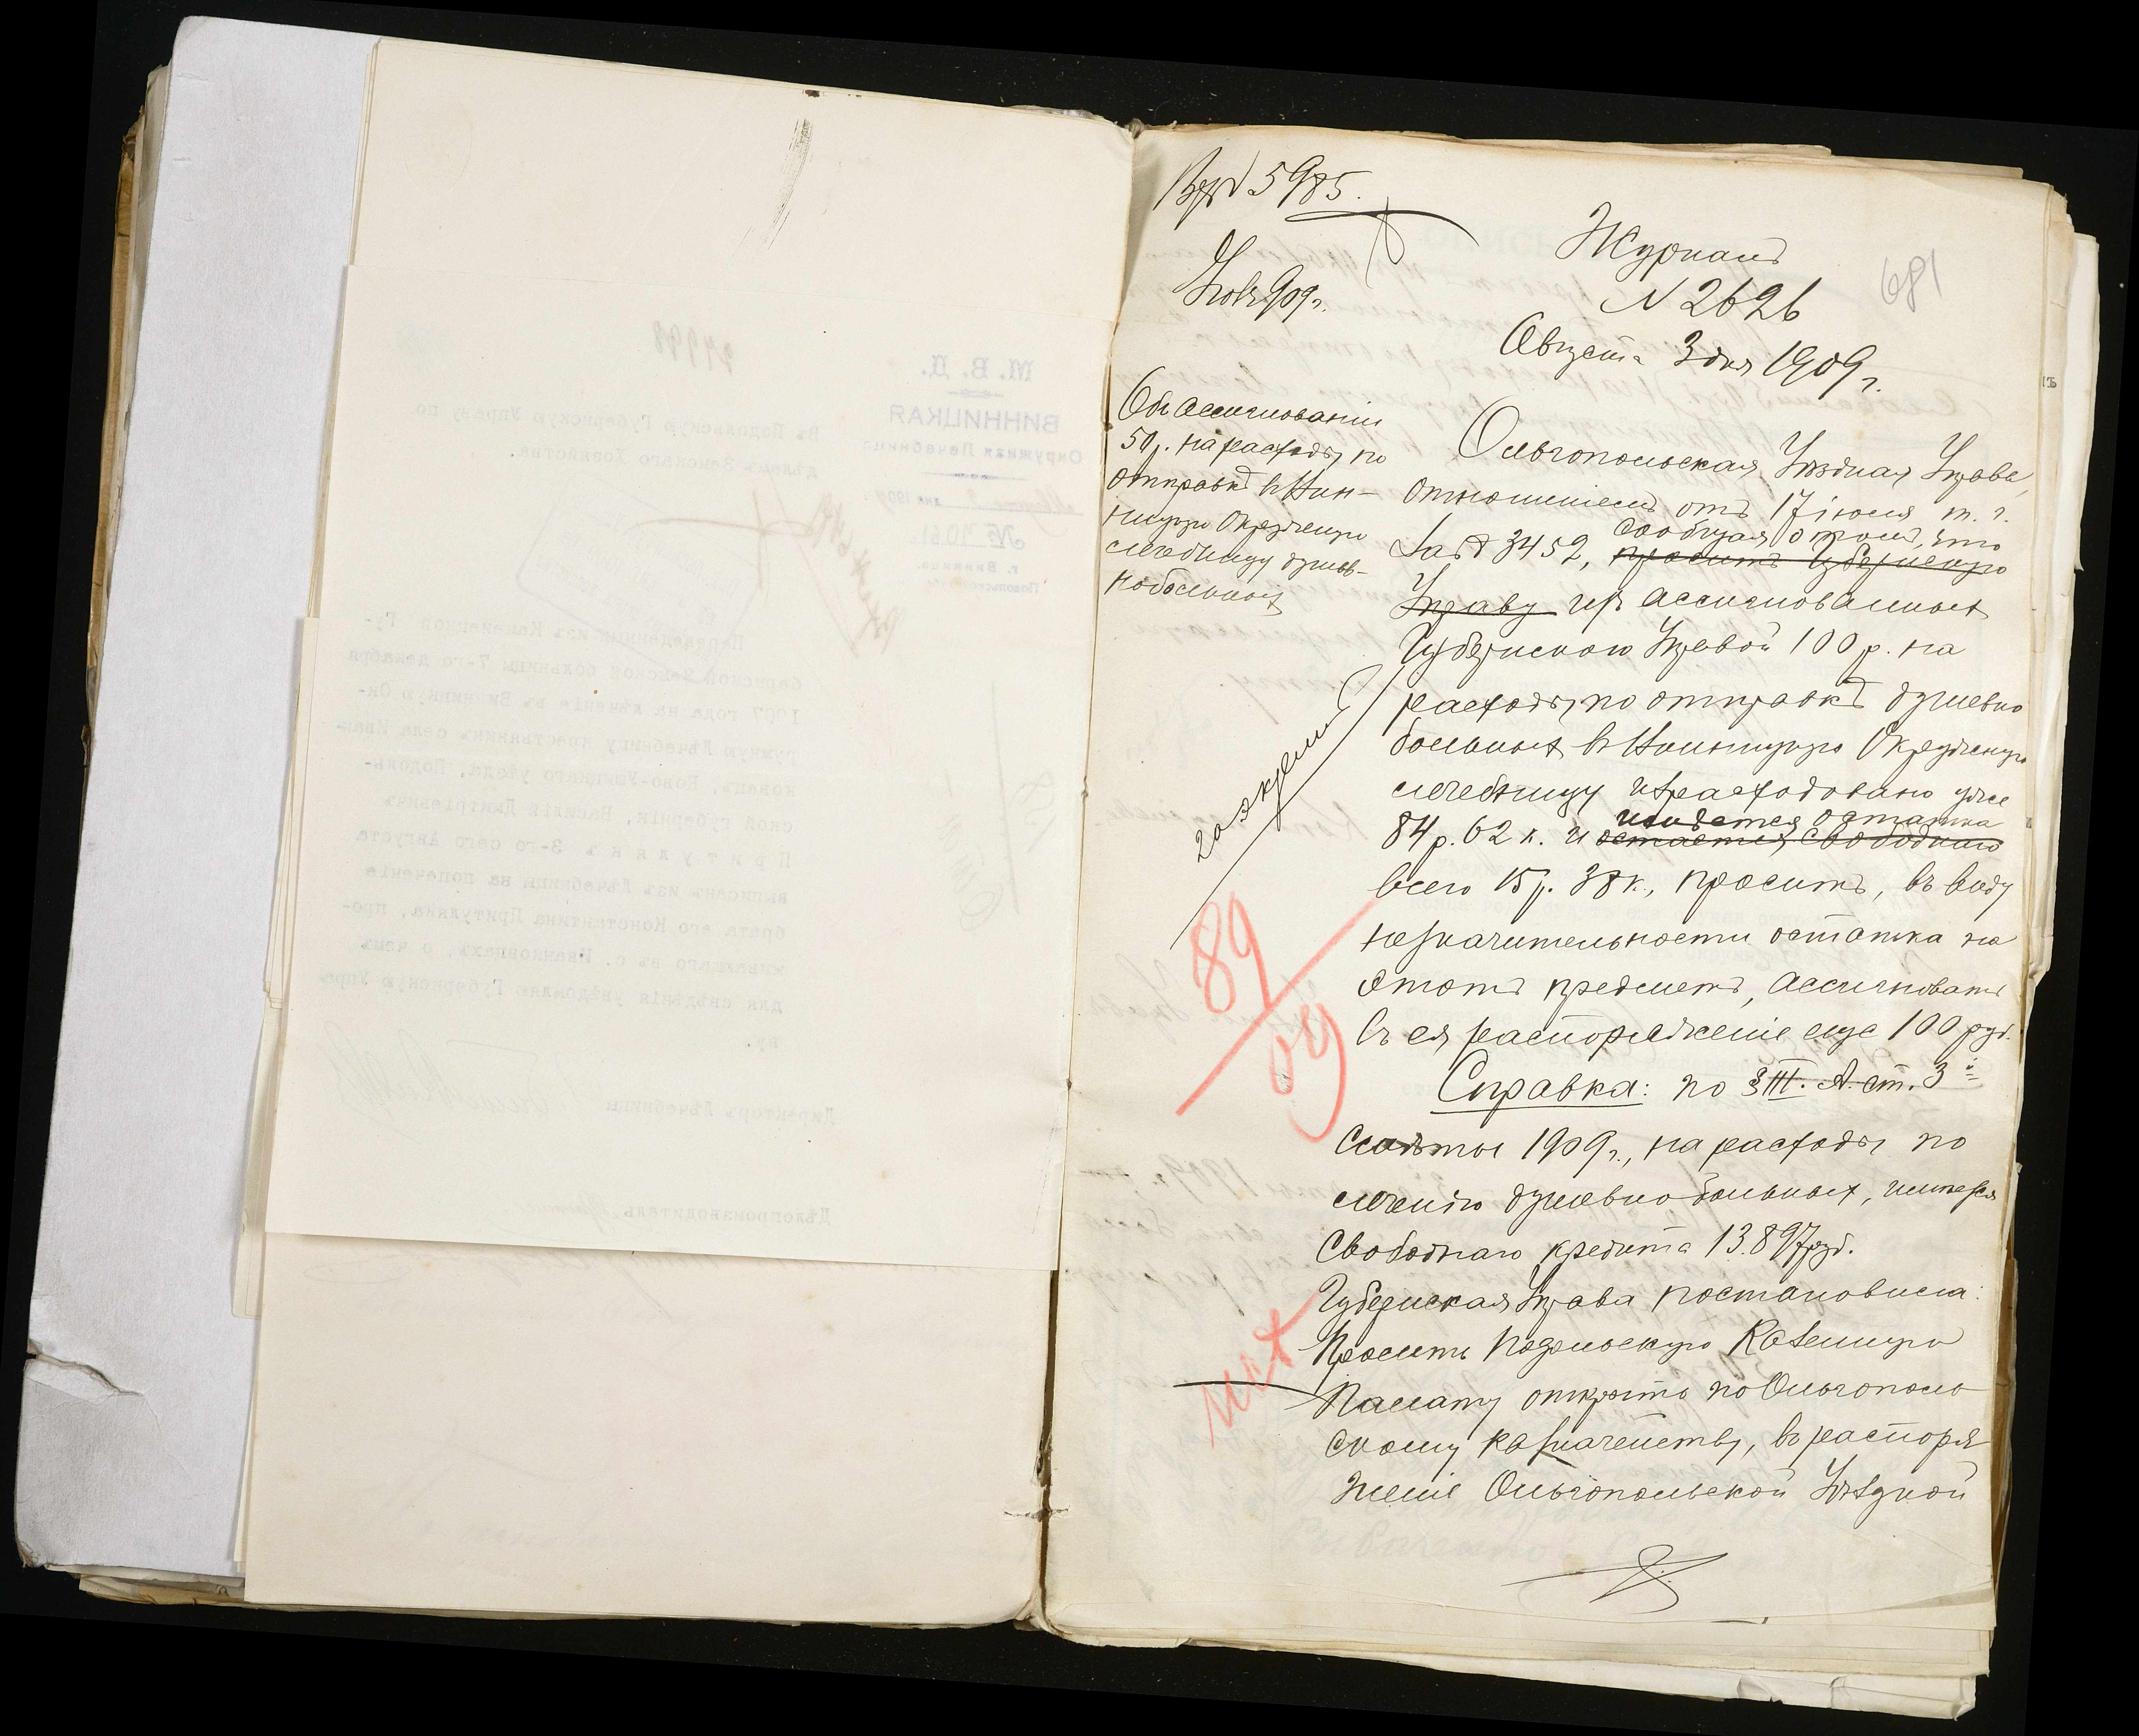 5985.
1909г.
Журналъ
N 2626
681
Августа 3 дня 1909 г.
Объ ассигнованіи
50 р. на расходы по
отправкѣ въ Вин-
ницкую Окружную
лечебницу душев-
нобольныхъ
Ольгопольская Уѣздная Управа,
отношеніемъ отъ 17 іюля т. г.
за № 3452, просить Губернскую
сообщая о томъ, что
Управу изъ ассигнованныхъ
Губернскою Управой 100 р. на
расходы по отправкѣ душевно
больныхъ въ Винницкую Окружную
лечебницу израсходовано уже
84 р. 62 к. и остается свободнаго
имѣется остатка
всего 15 р. 38 к., проситъ, въ виду
незначительности остатка на
этотъ предметъ, ассигновать
въ ея распоряженіе еще 100 руб.
Справка: по § III. А. ст. 3
смѣты 1909 г., на расходы по
леченію душевно больныхъ, имѣется
свободнаго кредита 13.897 руб.
Губернская Управа постановила:
Просить Подольскую Казенную
Палату открыть по Ольгополь
скому казначейству, въ распоря
женіе Ольгопольской Уѣздной
2 экземпл
89
09
М. В. Д.
ВИННИЦКАЯ
Окружная Лечебница
№ 1061
г. Винница.
Въ Подольскую Губернскую Управу по
дѣламъ Земскаго Хозяйства.
Переведенный изъ Каменецкой Гу-
бернской Земской больницы 7-го декабря
1907 года на лѣченіе въ Винницкую Ок-
ружную Лѣчебницу крестьянинъ села Иван-
ковецъ, Ново-Ушицкаго уѣзда, Подоль-
ской губерніи, Василій Дмитріевичъ
Притулякъ 3-го сего Августа
выписанъ изъ Лѣчебницы на попеченіе
брата его Константина Притуляка, про-
живающаго въ с. Иванковцахъ, о чемъ
для свѣдѣнія увѣдомляю Губернскую Упра-
ву.
Директоръ Лѣчебницы
Дѣлопроизводитель